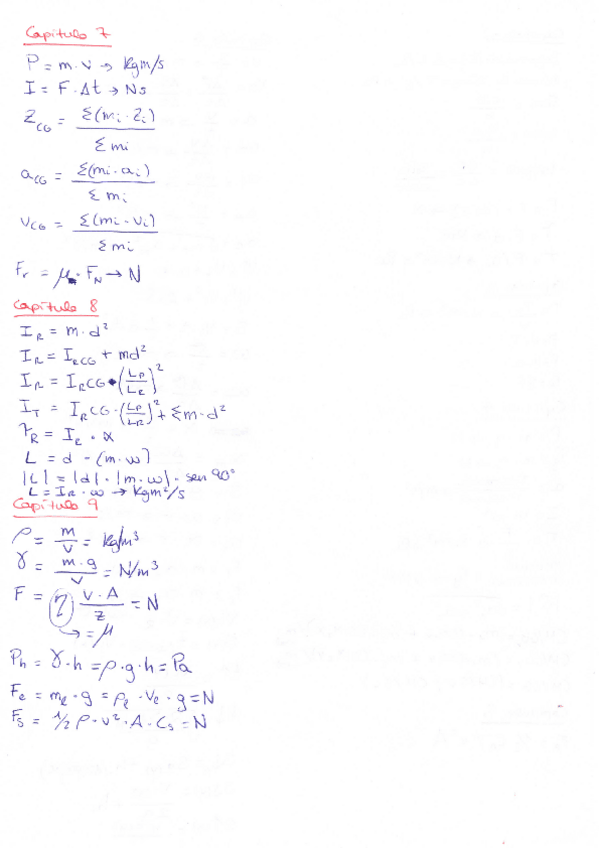 Capítulo 7
P = m · v → Kgm/s
I = F · Δt → Ns
Z_CG = Σ(mi · Zi) / Σ mi
a_CG = Σ(mi · ai) / Σ mi
v_CG = Σ(mi · vi) / Σ mi
Fr = μ · F_N → N
Capítulo 8
I_R = m · d²
I_R = I_RCG + md²
I_R = I_RCG · (LP/LR)²
I_T = I_RCG · (LP/LR)² + Σm · d²
τ_R = I_R · α
L = d · (m · w)
|L| = |d| · |m · w| · sen 90°
L = I_R · w → Kgm²/s
Capítulo 9
ρ = m / V = kg/m³
γ = m · g / V = N/m³
F = η V · A / Z = N
→ = μ
Ph = γ · h = ρ · g · h = Pa
Fe = me · g = ρe · Ve · g = N
Fs = 1/2 ρ · v² · A · Cs = N